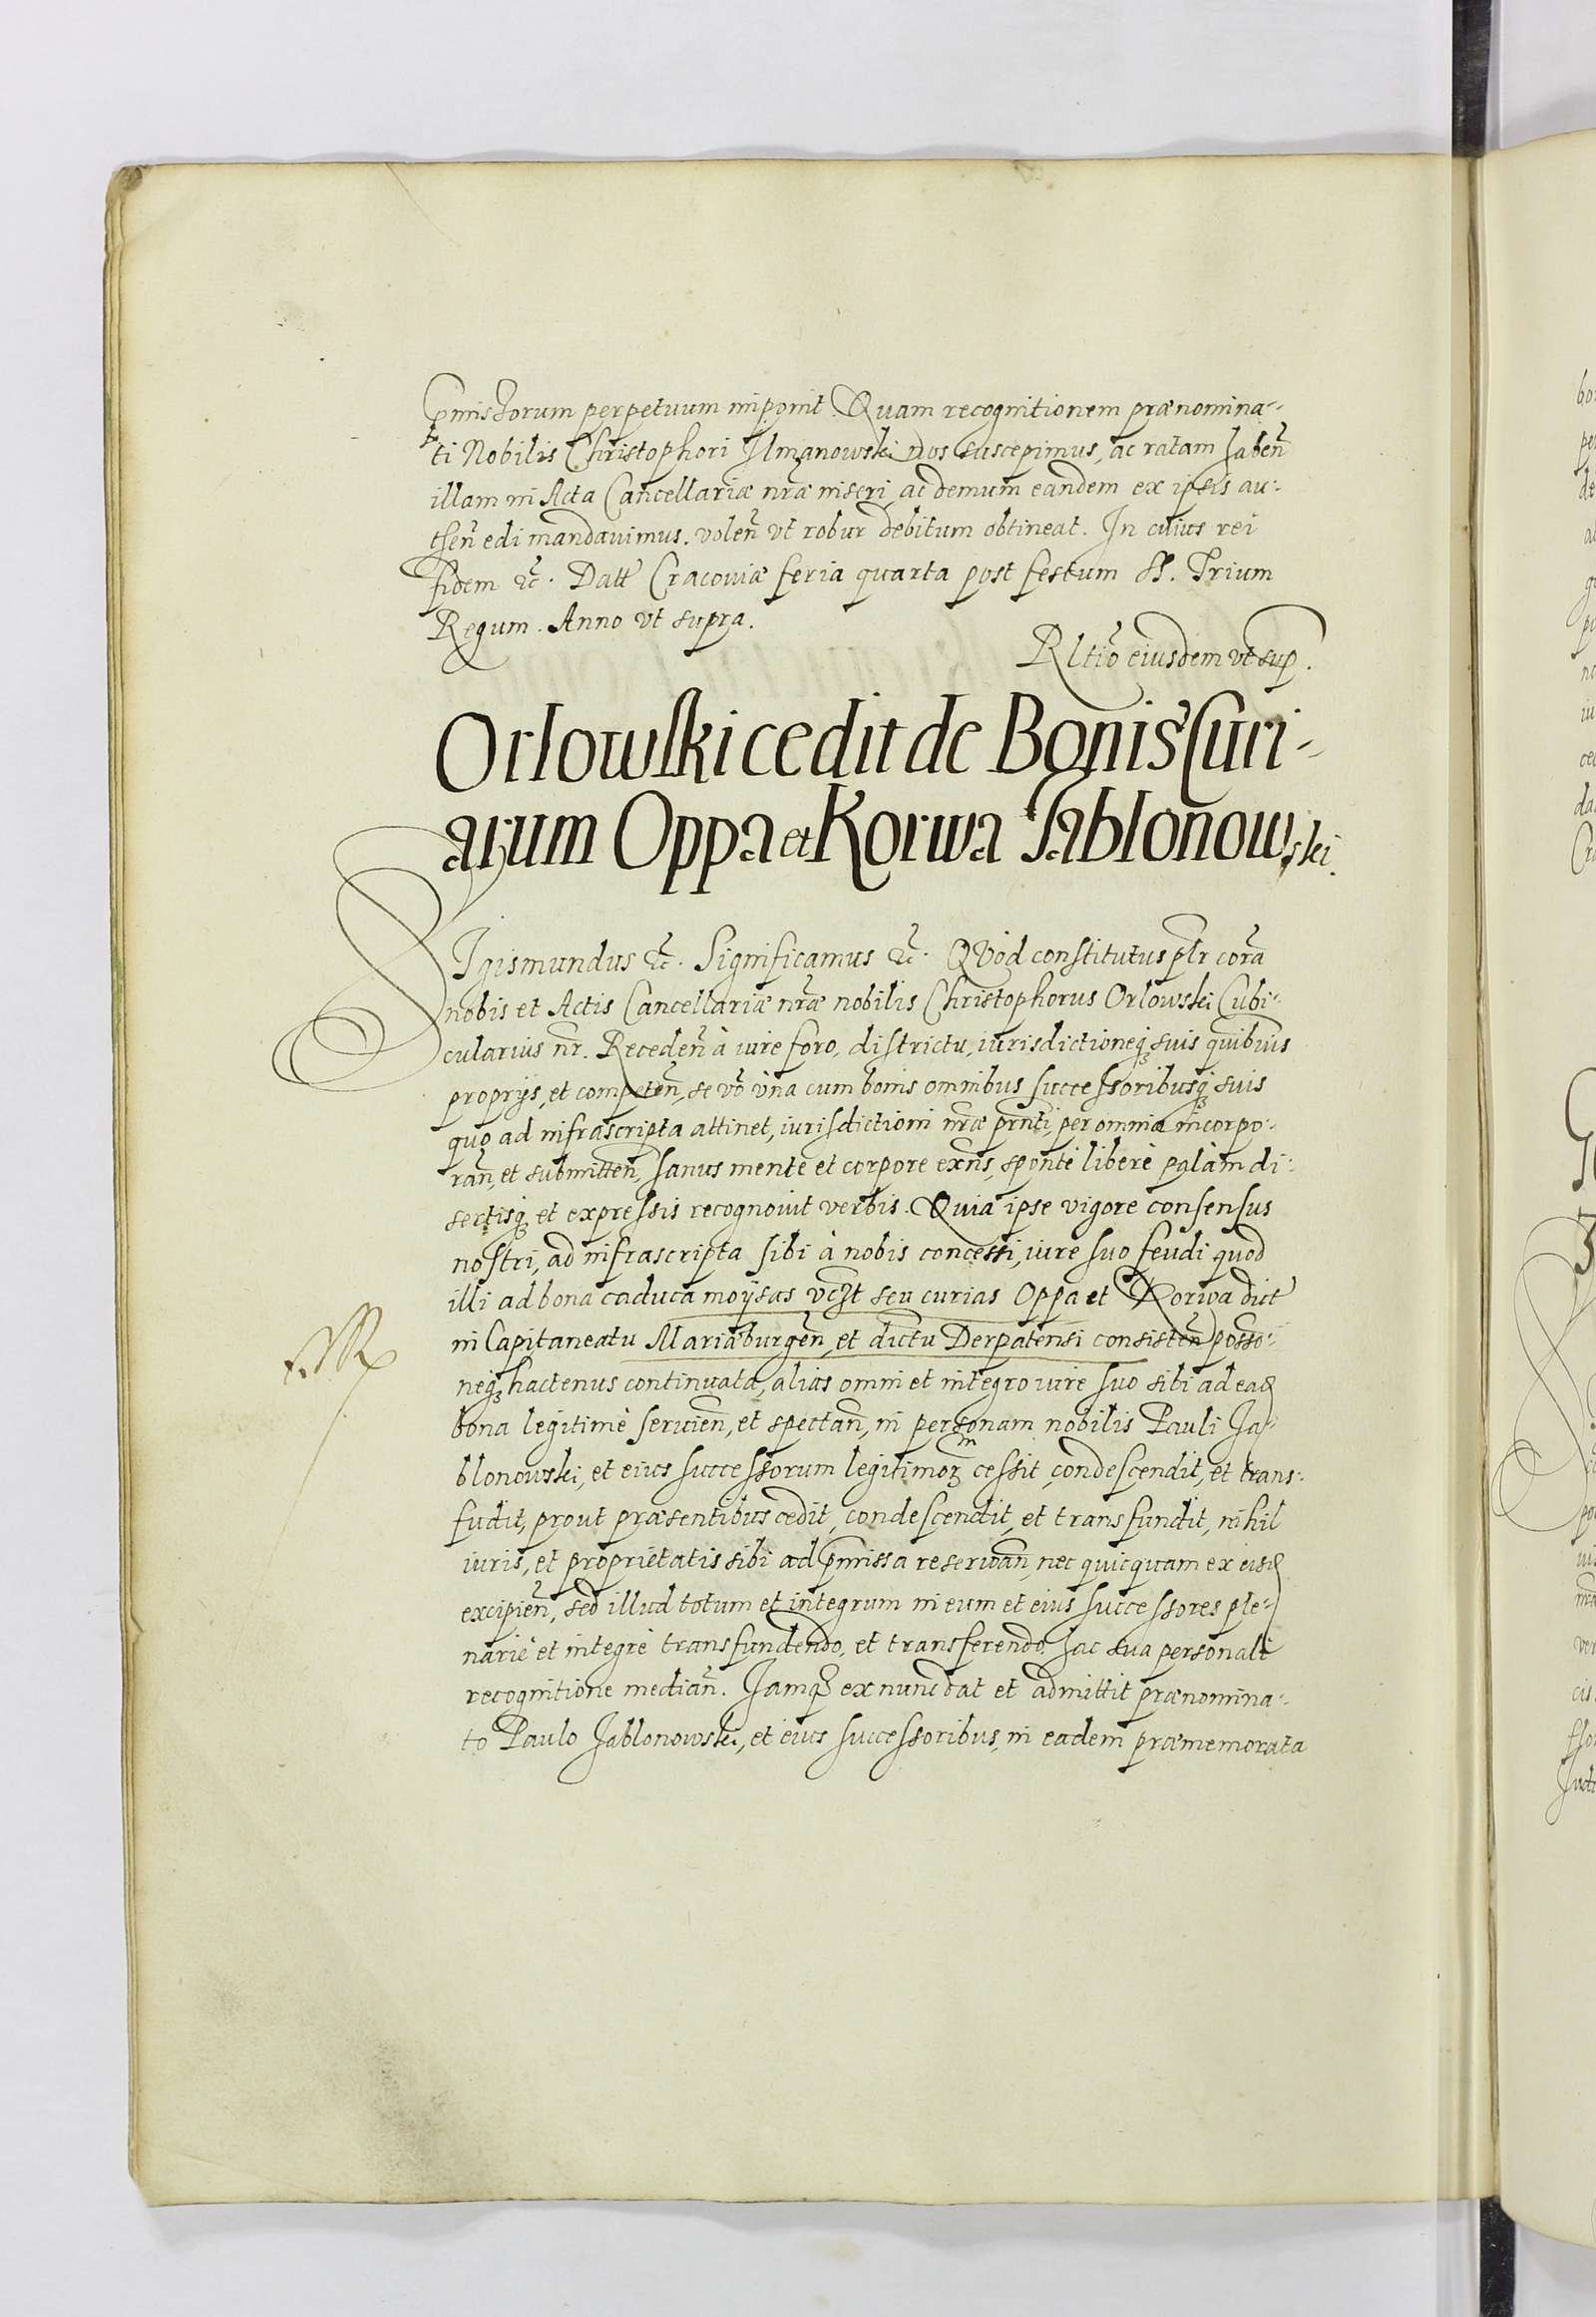 p̃missorum perpetuum imponit. Quam recognitionem prænomina-
ti Nobilis Christophori Ilmanowski nos suscepimus, ac ratam haben̄
illam in Acta Cancellariæ nr̃æ inseri, ac demum eandem ex ipsis au-
then̄ edi mandavimus. volen̄ vt robur debitum obtineat. In cuius rei
fidem ꝛc̃. Datt Cracoviæ feria quarta post festum SS. Trium
Regum. Anno vt supra.
Rltĩo eiusdem vt sup.
Orlowski cedit de Bonis Curi-
arum Oppa et Korwa Jablonowski.
Sigismundus ꝛc̃. Significamus ꝛc̃. Quod constitutus pl̃r corã
nobis et Actis Cancellariæ nr̃æ nobilis Christophorus Orlowski Cubi-
cularius nr̃. Receden̄ à iure foro, districtu, iurisdictioneq₃ suis quibuis
proprijs, et competen̄, se võ vna cum bonis omnibus successoribusq₃ suis
quo ad infrascripta attinet, iurisdictioni nr̃æ pñti, per omnia incorpo-
ran̄, et submitten̄, sanus mente et corpore exñs, sponte liberè palàm di-
sertisq₃ et expressis recognovit verbis. Quia ipse vigore consensus
nostri, ad infrascripta sibi à nobis concessi, iure suo feudi quod
illi ad bona caduca moysas vc̃t seu curias Oppa et Korwa dict
in Capitaneatu Mariæburgen̄, et dictu Derpatensi consisten̄ posso-
neq₃ hactenus continuata, alias omni et integro iure suo sibi ad eaꝗ
bona legitimè servien̄, et spectan̄, in personam nobilis Pauli Ja-
blonowski, et eius successorum legitimoꝝ cessit, condescendit, et trans-
fudit, prout præsentibus cedit, condescendit, et transfundit, nihil
iuris, et proprietatis sibi ad p̃missa reservan̄, nec quicquam ex eisꝗ
excipien̄, sed illud totum et integrum in eum et eius successores ple-
nariè et integrè transfundendo, et transferendo. hac sua personali
recognitione median̄. Jamꝗ ex nunc dat et admittit prænomina-
to Paulo Jablonowski, et eius successoribus, in eadem præmemorata